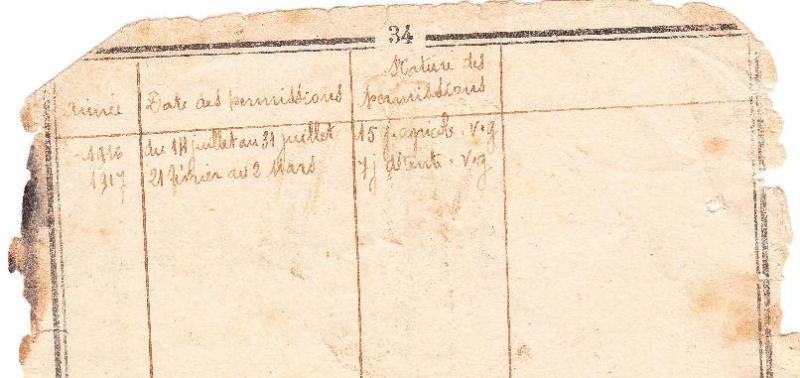 34
Année Date des permissions Nature des
permissions
1916 du 14 juillet au 31 juillet 15 j agricole. V.g
1917 21 février au 2 Mars 7 j détente. V.g